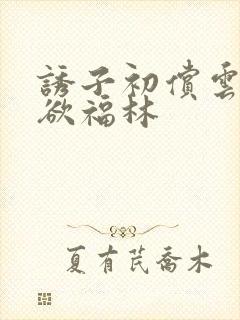 誘子初償雲
欲福林
夏有芪喬木